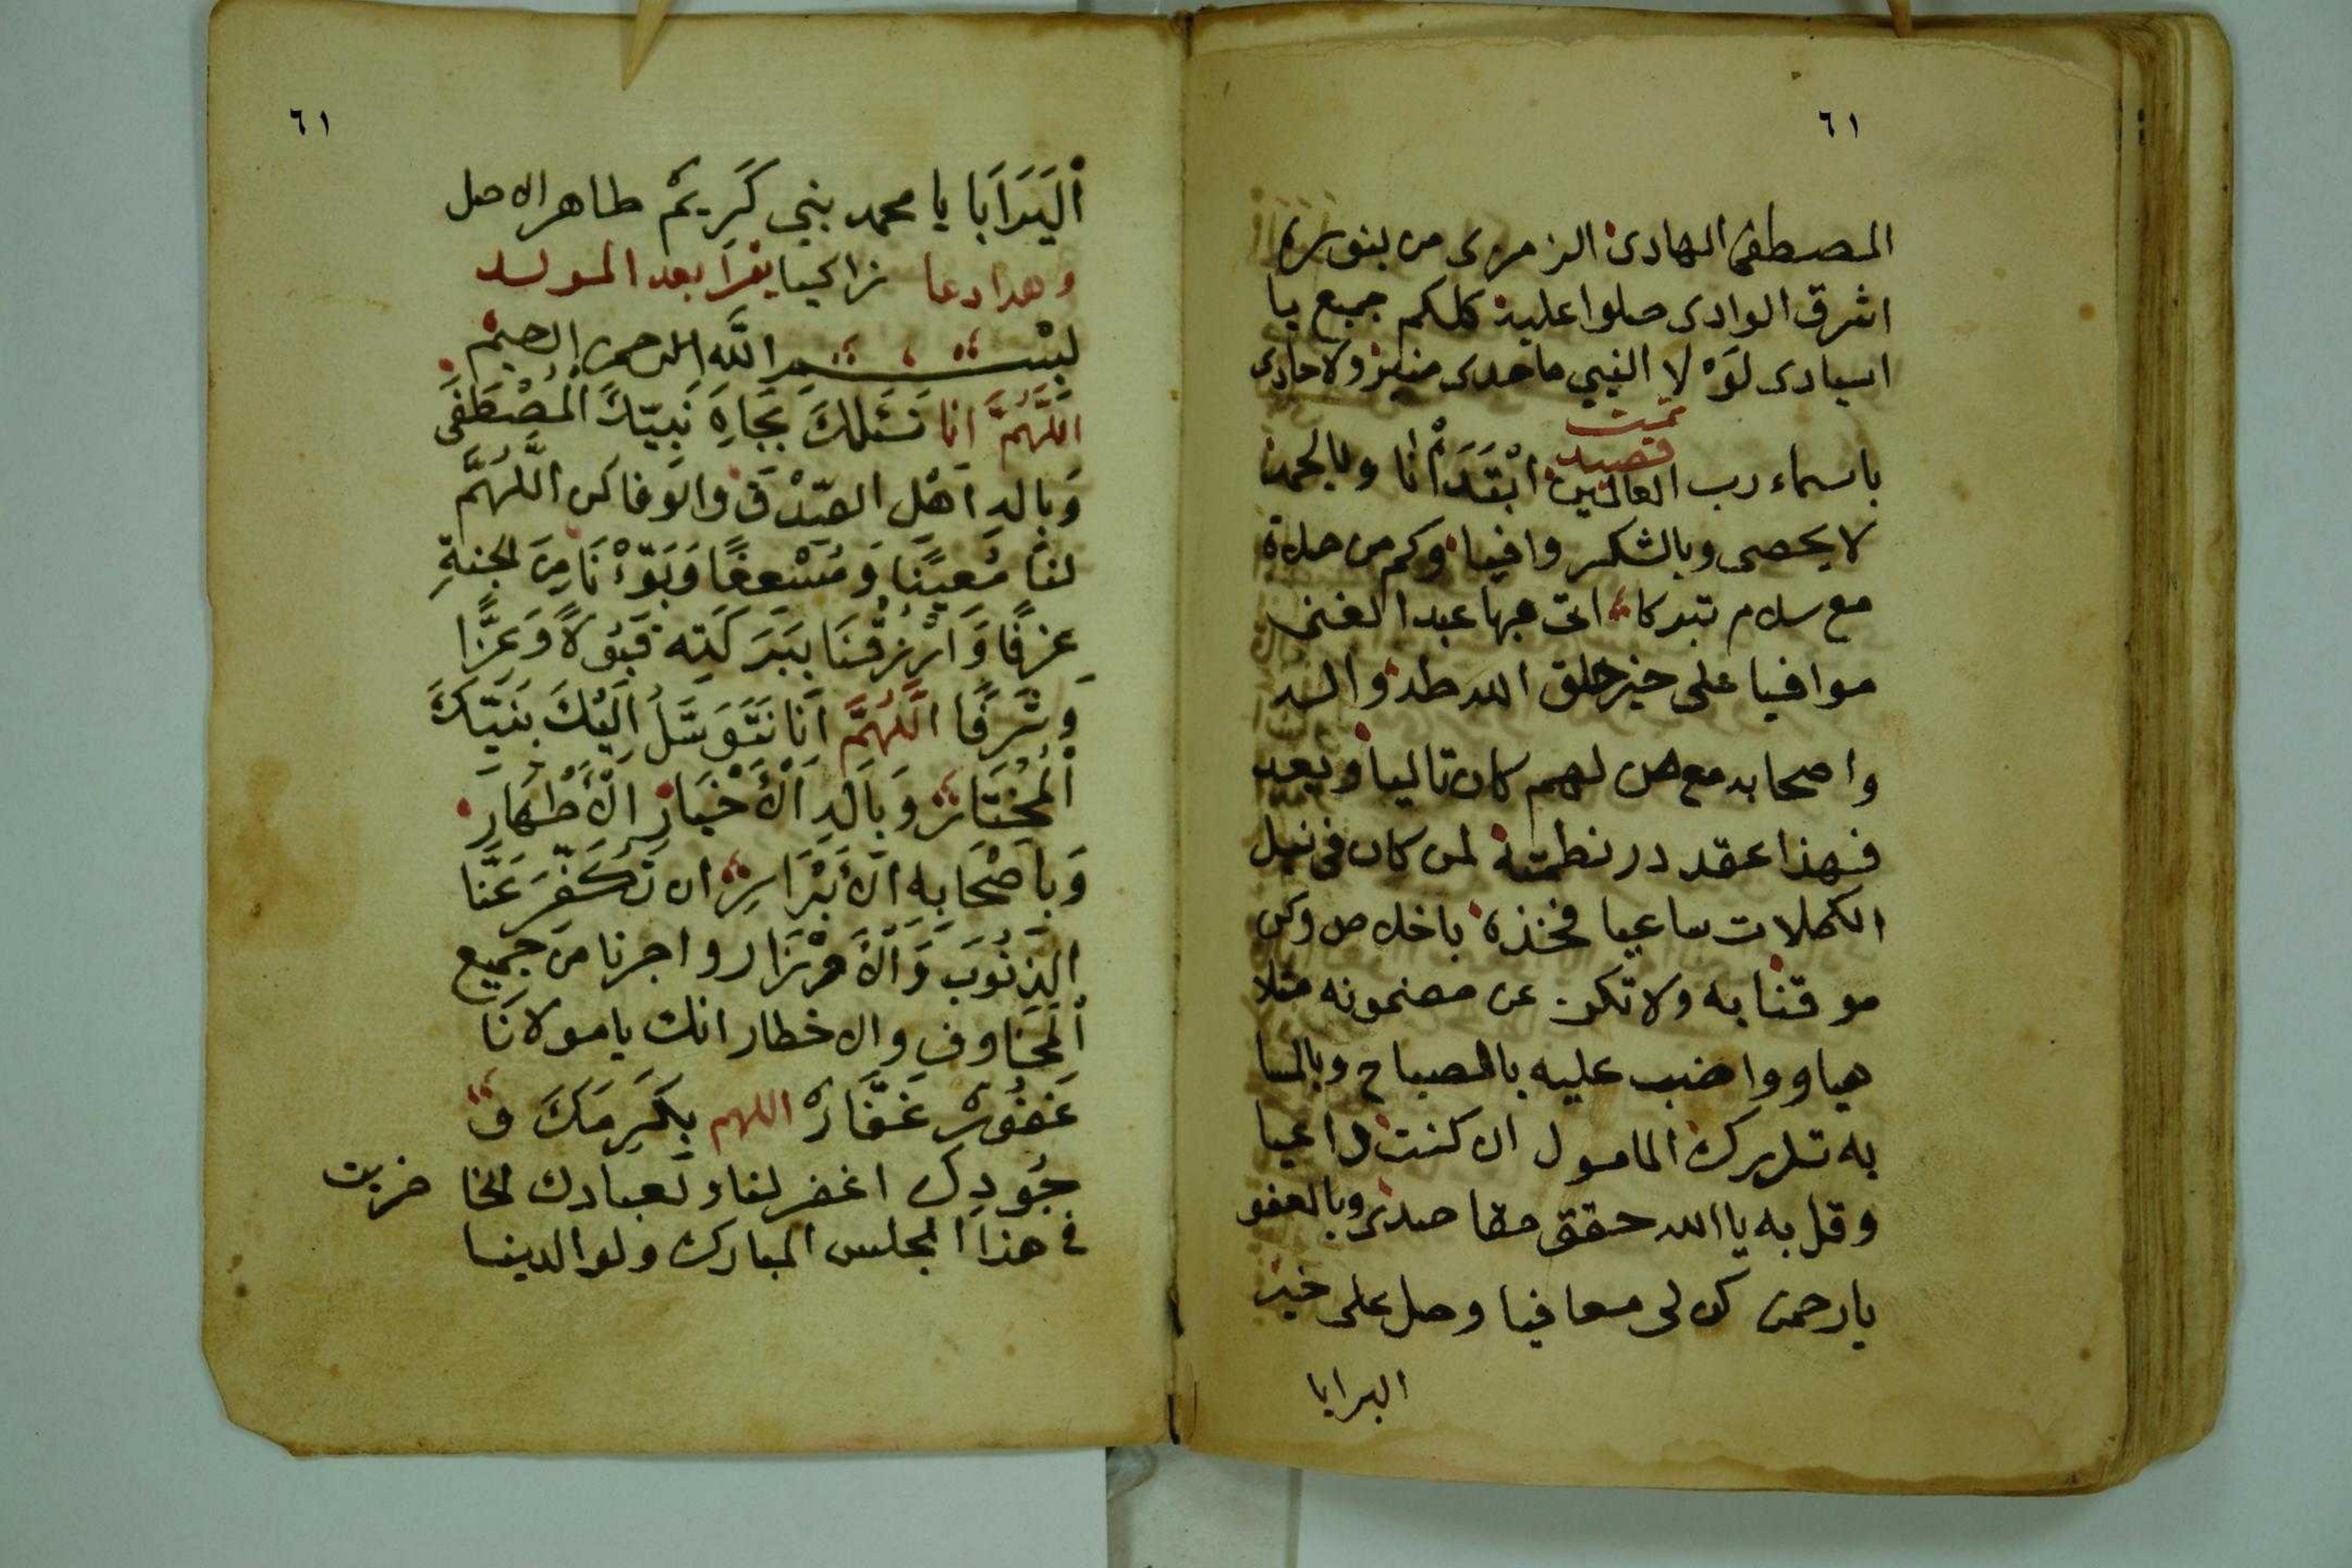 ٦١
المصطفى الهادى الزمزمى من بنوره
اشرق الوادى صلوا عليه كلكم جميع يا
اسيادى لوْ لا النبي ما حدى منبر ولا حادى
تمت
قصيد
باسماء رب العالمين ابْتَدَأْ انا وبالحمد
لا يحصى وبالشكر وافيا وكم من صلاة
مع سلام تبركا اتى بها عبد الغنى
موافيا على خير خلق الله طه واله
واصحابه مع من لهم كان تاليا وبعد
فهذا عقد در نظمته لمن كان فى نيل
الكملات ساعيا فخذه باخلاص وكن
موقنا به ولا تكن عن مضمونه متلا
هيا وواضب عليه بالصباح وبالمسا
به تدرك المامول ان كنت داعيا
وقل به يا الله حقق مقاصدى وبالعفو
يا رحمن كن لى معافيا وصل على خير
البرايا
٦١
اَلْبَرَايَا يا محمد نبي كَرِيمْ طاهر الاصل
وهدا دعا يقرا بعد المولد
بسْم الله الرحمن الرحيمْ
اللَّهُمَّ انا نَسْئَلُكَ بِجَاهِ نَبِيّكَ الْمُصْطَفَى
وَبِالهِ اَهْلِ الصّدْقِ والوفا كن اللَّهُمَّ
لنا مُعِينًا وَمُسْعِفًا وَبَوّءْنَا مِنَ الجنةِ
غزفًا وَارْزُقْنَا بِبَرَكَتِه قَبُولاً وَعَزًّا
وشَرَفًا اللَّهُمَّ اَنَا نَتَوَسَّلُ اِلَيْكَ بِنَبِيّكَ
اَلْمُخْتَارْ وَبِالهِ اَلْأَخْيَارِ اَلْأَطْهَارِ
وَبِاَصْحَابِه اَلْأَبْرَارِ ان تُكَفّرَ عَنَّا
الذِنُوبَ وَالْأَوْزَار واجرنا من جَمِيع
اَلْمَخَاوف والاخطار انك يا مولانَا
غَفُورْ غَفَّارْ اللهم بِكَرَمَكَ و
جُودِك اغفر لنا ولعبادك الحا ضرين
في هذا المجلس المبارك ولوالدينا